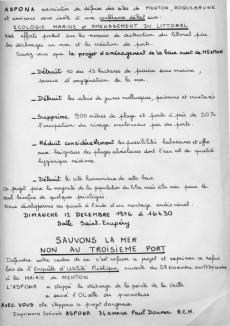 ASPONA association de défense des sites de MENTON, ROQUEBRUNE
et environs vous invite à une conférence débat sur
ECOLOGIE MARINE et AMENAGEMENT DU LITTORAL
efforts portent sur les menaces de destruction du littoral par
les déchargements en mer et la création de ports.
Savez-vous que le projet d'aménagement de la baie ouest de MENTON
— Détruit 10 des 15 hectares de prairies sous marine,
source d'oxygénation de la mer.
— Détruit les abris de jeunes mollusques, poissons et crustacés
— Supprime 900 mètres de plage et porte à près de 50%
l'occupation du rivage mentonnais par des ports.
— Réduit considérablement les possibilités balnéaires et offre
aux baigneurs des plages alvéolaires dont l'eau est de qualité
hygiénique médiocre.
— Détruit le site harmonieux de cette baie
Ce projet prive la majorité de la population du libre accès à la mer pour le
seul bénéfice de quelques privilégiés
Nous développerons ces points à l'aide d'un montage audio visuel:
DIMANCHE 12 DECEMBRE 1976 à 16H30
Salle Saint-Exupéry
SAUVONS LA MER
NON AU TROISIEME PORT
Défendre votre cadre de vie c'est refuser ce projet et exprimer ce refus
lors de l'Enquête d'Utilité Publique, ouverte du 29 Novembre au 17 Décembre
à la MAIRIE de MENTON
L'ASPONA a stoppé la décharge de la pointe de la Veille
a sauvé l'OLivette des promoteurs
AVEC VOUS elle stoppera ce projet dangereux.
Imprimerie Spéciale ASPONA 34 avenue Paul Doumer R.C.M.